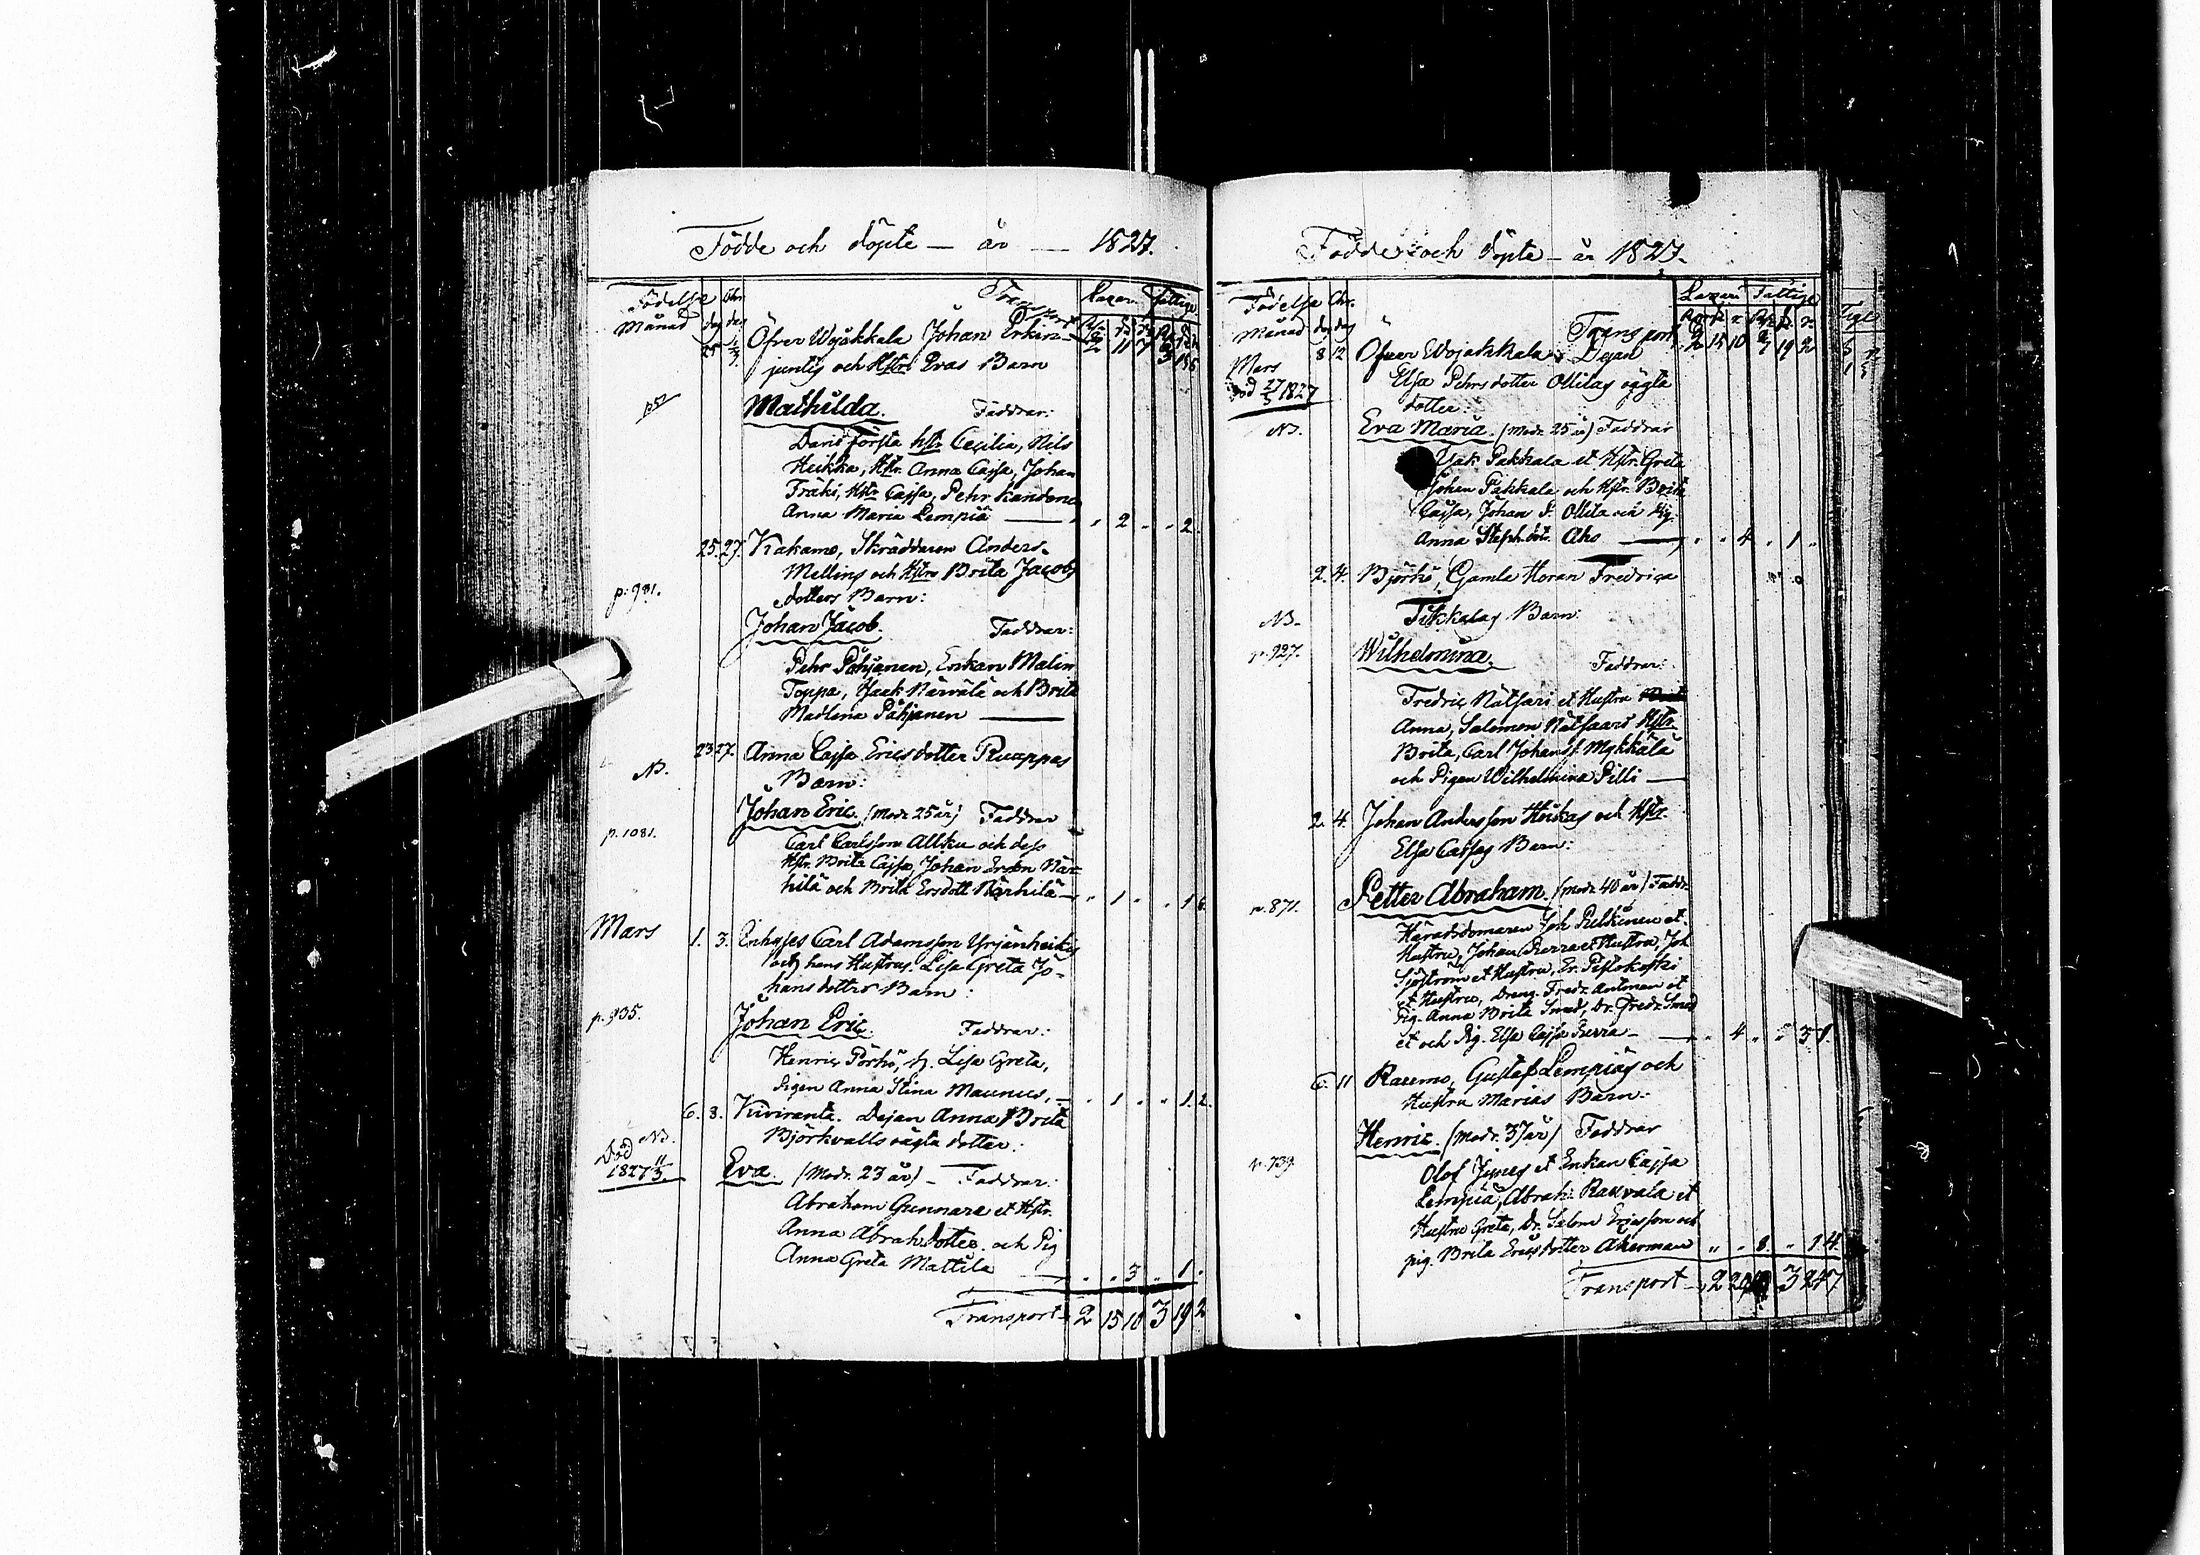 Födde och döpte — år — 1827.
Födelse Chr. Transport Lazar. Fattige
Månad dag dag
25 Öfver Wojakkala Johan Erkin-
juntis och Hstr Evas Barn
Mathilda. Faddrar:
första Hstr Cecilia, Nils
Heikka, Hstr. Anna Cajsa, Johan
Fräki, Hstr Cajsa, Pehr
Anna Maria Lempiä — " 2 " " 2
25. 27. Kakamo, Skräddaren Anders
Melling och Hstrs Brita Jacobs
dotters Barn:
p: 981.
Johan Jacob. Faddrar:
Pehr Pohjanen, Enkan Malin
Toppa, Isak Närvälä och Brita
Madlena Pohjanen —
23 27. Anna Cajsa Ericsdotter Ruappas
NB. Barn:
Johan Eric. (Modr 25 år) Faddrar
p. 1081. Carl Carlsson Alkku och dess
Hstr. Brita Cajsa, Johan Ersson När-
hilä och Brita Ersdott. Närhilä — " 1 " " 1 6.
Mars 1. 3. Enhyses Carl Adamsson Yrjänheikis
och hans Hustrus Lisa Greta Jo-
hansdotters Barn:
p. 935. Johan Eric. Faddrar:
Henric Pörhö, h. Lisa Greta,
Pigan Anna Stina Maunus, — " 1 " " 1. 2.
6. 8. Kiviranta. Dejan Anna Brita
NB. Björkvalls oägta dotter:
Död
1827 11/3. Eva. (Modr. 23 år) — Faddrar:
Abraham Gunnare et Hstr.
Anna Abrah. dotter och Pig
Anna Greta Mattila — " " 3 " 1 "
Transport — 2 15 10 3 19 2
Födde och döpte — år 1827.
Födelse Chr. Lazar. Fattige
Månad dag dag Transport 2 15 10 3 19 2
Mars 8 12 Öfver Wojakkala Dejan
död 27/3 1827 Elsa Pehrsdotter Ollilas oägta
dotter:
NB. Eva Maria. (Modr. 25 år) Faddrar
Isak Pakkala et Hstr. Greta
Johan Pakkala och Hstr. Brita
Cajsa, Johan S. Ollila och Pig.
Anna Steph. dotr. Aho — " " 4 " 1 "
2. 4. Björkö, Gamla Horan Fredrica
NB. Tikkalas Barn:
p. 927. Wilhelmina. Faddrar:
Fredric Nätsari et Hustru
Anna, Salomon Nätsaari Hstr.
Brita, Carl Johans S. Mykkälä
och Pigan Wilhelmina Pilli —
2. 4. Johan Andersson Heikas och Hstr.
Elsa Cajsas Barn:
p. 871. Petter Abraham. (modr 40 år) Faddr.
Häradsdomaren Joh Pelkinen et
Hustru, Johan et Hustru, Joh
Sjöström et Hustru, Er.
et Hustru, Dreng. Fredr. Antonen et
Pig. Anna Brita Smed, Dr. Fredr. Smed
et och Pig. Elsa Cajsa — " 4 " " 3
6. 11 Raumo, Gustaf Lempiäs och
Hustru Marias Barn:
Henric. (Modr. 37 år) Faddrar
p. 739. Olof et Enkan Cajsa
Lempiä, Abrah. Rauvala et
Hustru Greta, Dr. Salom Ericsson och
pig. Brita Ericsdotter Åkerman " " 8. " 1 4.
Transport — 2 3 24 7